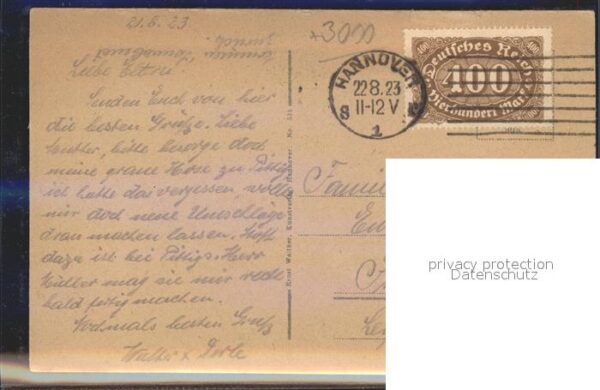 21.8.23
+3000
Liebe Eltern
Senden Euch von hier
die besten Grüße. Liebe
Mutter, bitte besorge doch
meine graue Hose zu Pittig
ich hatte das vergessen wollte
mir doch neue Umschläge
dran machen lassen. Stoff
dazu ist bei Pittig. Herr
Müller mag sie mir recht
bald fertig machen.
Nochmals besten Gruß
Walter
Ernst Walter, Kunstverlag, Hannover.
HANNOVER
22.8.23
8 11-12 V
1
Deutsches Reich
400
400
400
Vierhundert Mark
Famili
privacy protection
Datenschutz